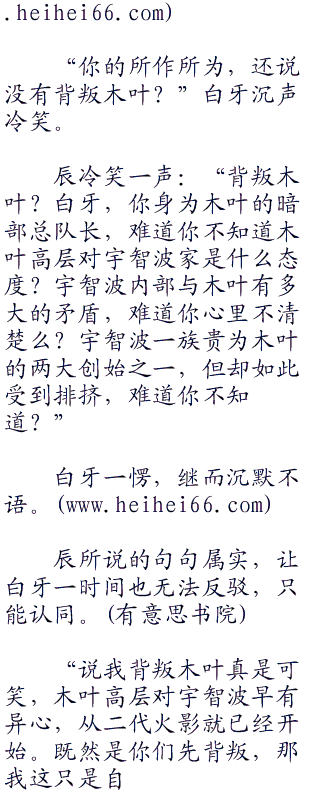 .heihei66.com)
“你的所作所为，还说
没有背叛木叶？”白牙沉声
冷笑。
辰冷笑一声：“背叛木
叶？白牙，你身为木叶的暗
部总队长，难道你不知道木
叶高层对宇智波家是什么态
度？宇智波内部与木叶有多
大的矛盾，难道你心里不清
楚么？宇智波一族贵为木叶
的两大创始之一，但却如此
受到排挤，难道你不知
道？”
白牙一愣，继而沉默不
语。(www.heihei66.com)
辰所说的句句属实，让
白牙一时间也无法反驳，只
能认同。(有意思书院)
“说我背叛木叶真是可
笑，木叶高层对宇智波早有
异心，从二代火影就已经开
始。既然是你们先背叛，那
我这只是自